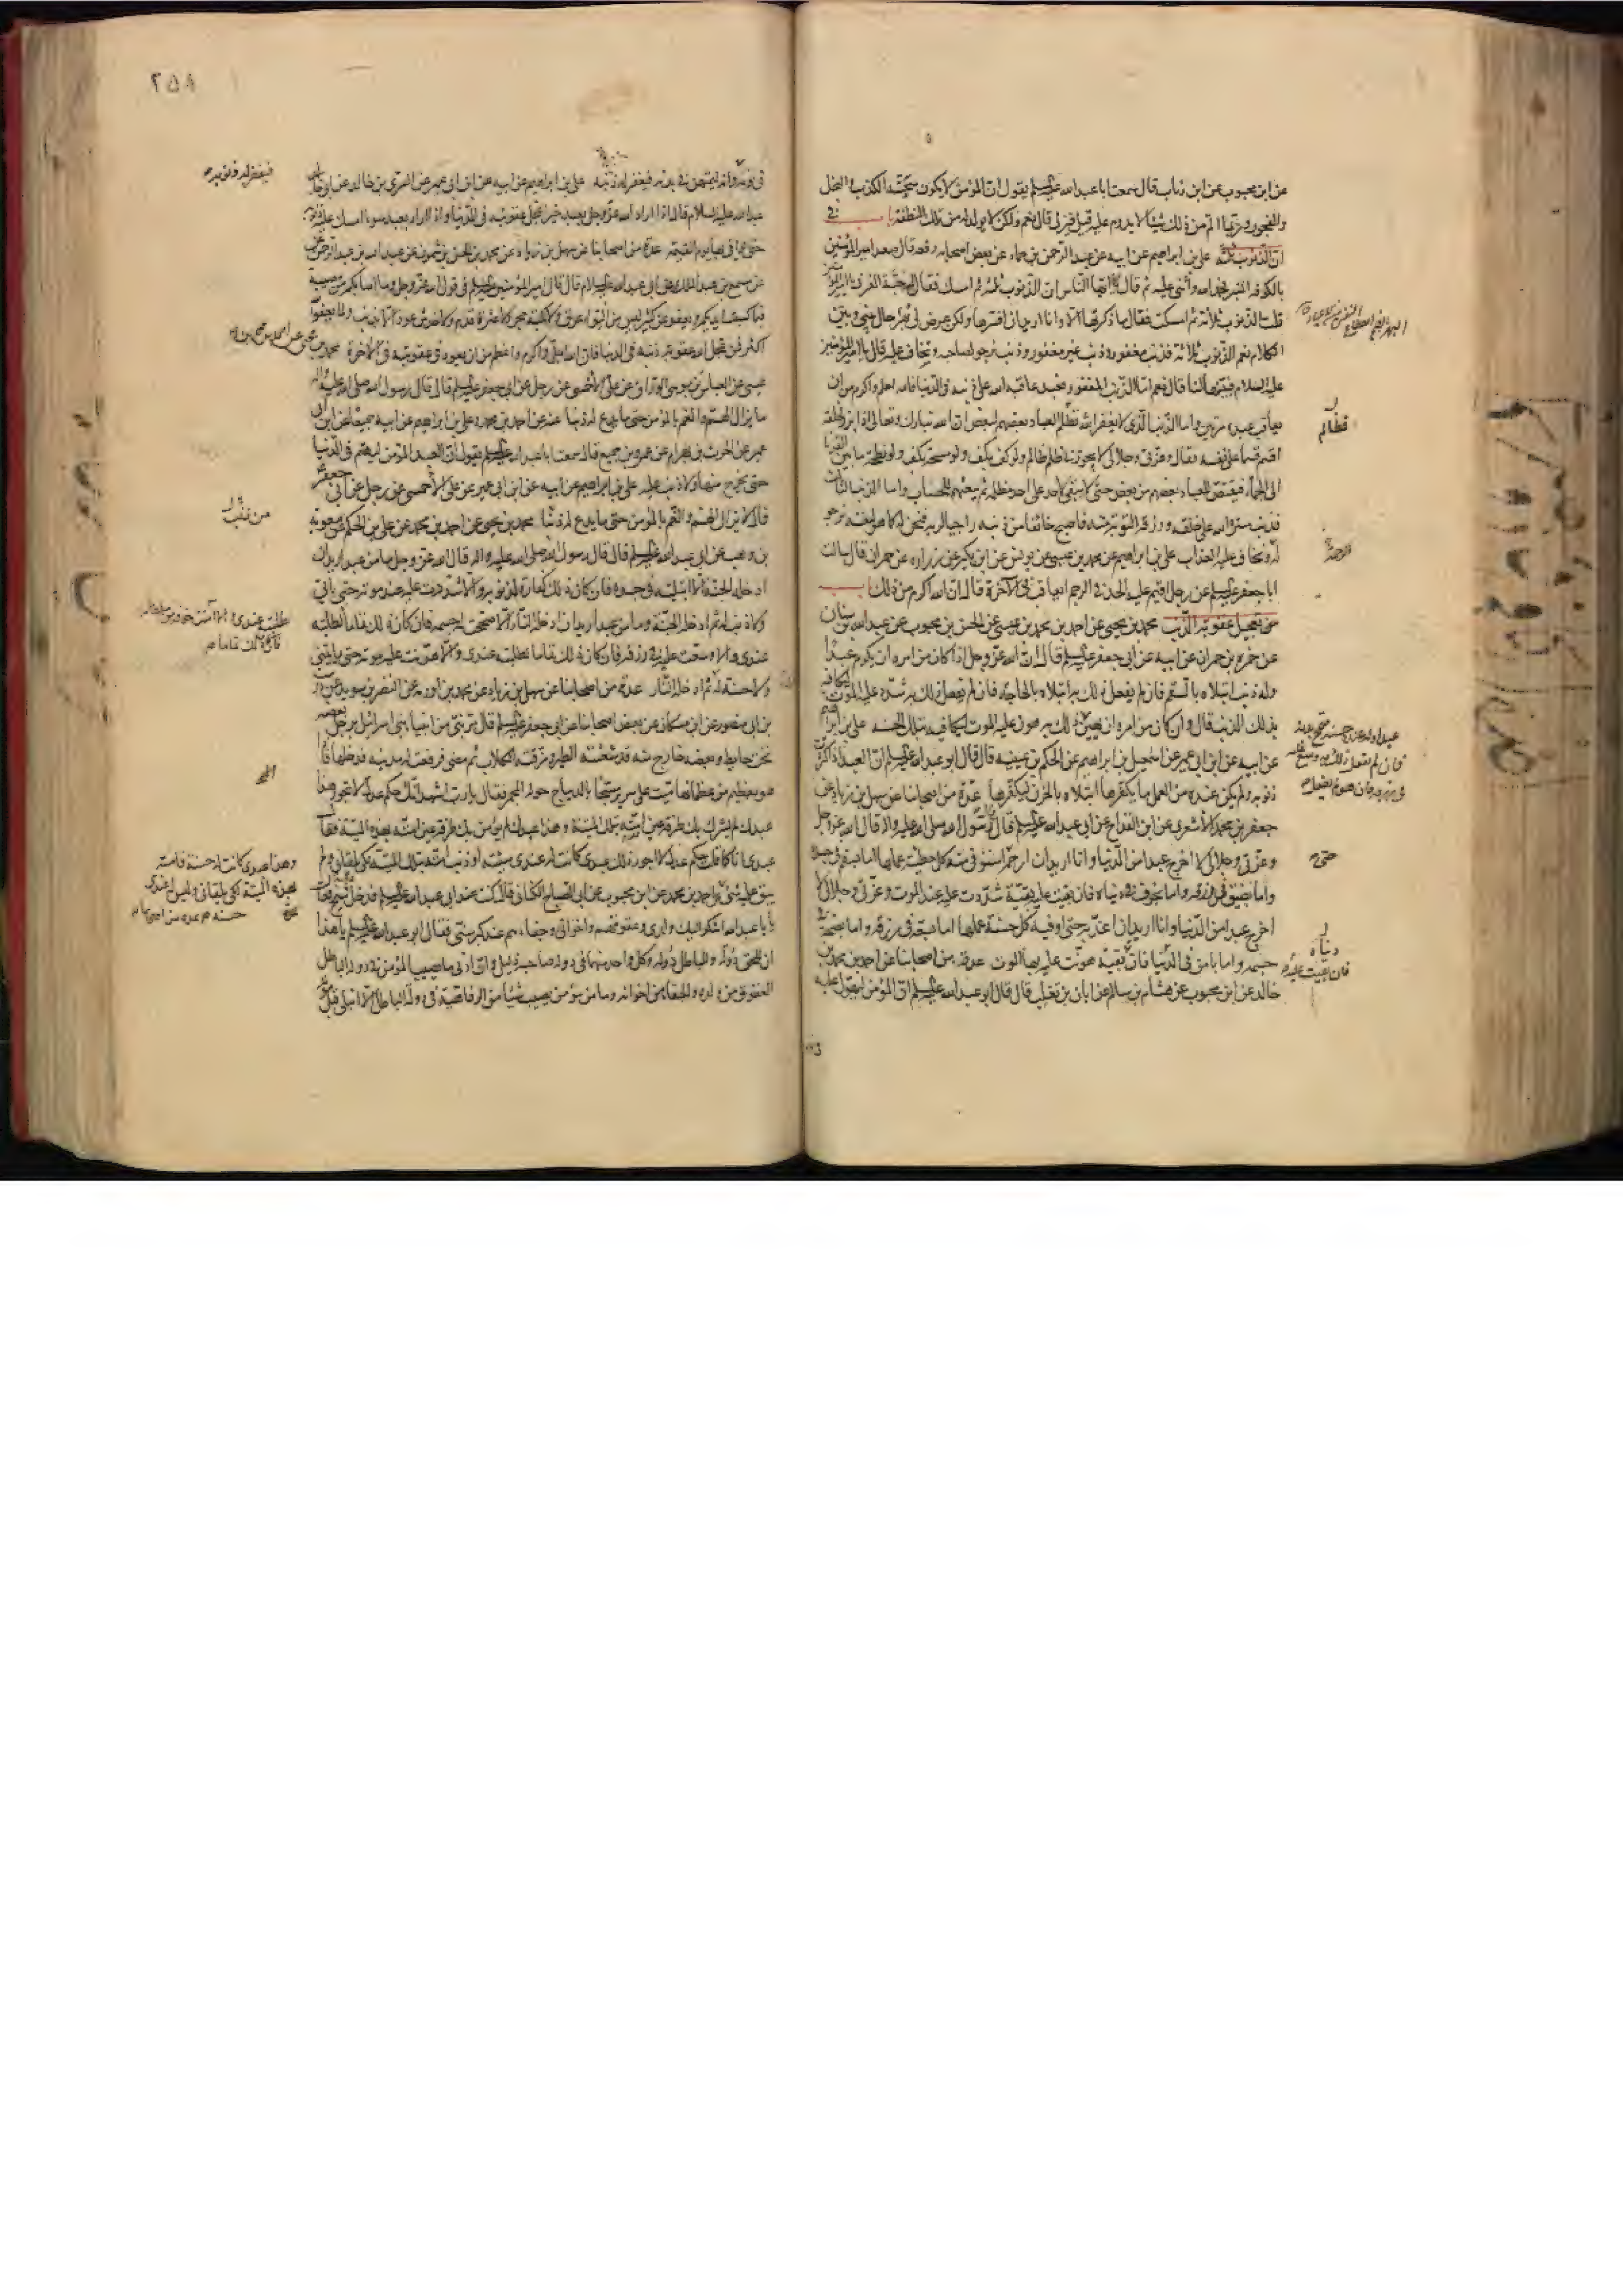 عن ابن محبوب عن ابن رئاب قال سمعت ابا عبد الله عليه السلم يقول ان المؤمن لا يكون سجيته الكذب والبخل
والفجور وربما الم من ذلك شيئا لا يدوم عليه قيل فيزني قال نعم ولكن لا يولد له من تلك النطفة باب في
ان الذنوب ثلثة علي بن ابراهيم عن ابيه عن عبد الرحمن بن حماد عن بعض اصحابه رفعه قال صعد امير المؤمنين
بالكوفة المنبر فحمد الله وأثنى عليه ثم قال ايها الناس ان الذنوب ثلثة ثم امسك فقال له حبة العرني يا امير المؤمنين
قلت الذنوب ثلاثة ثم امسكت فقال ما ذكرتها الا وانا اريد ان افسرها ولكن عرض لي بهر حال بيني وبين
الكلام نعم الذنوب ثلاثة فذنب مغفور وذنب غير مغفور وذنب نرجو لصاحبه ونخاف عليه قال يا امير المؤمنين
عليه السلام فبينها لنا قال نعم اما الذنب المغفور فعبد عاقبه الله على ذنبه في الدنيا فالله احلم واكرم من ان
يعاقب عبده مرتين واما الذنب الذي لا يغفر الله فظلم العباد بعضهم لبعض ان الله تبارك وتعالى اذا برز لخلقه
اقسم قسما على نفسه فقال وعزتي وجلالي لا يجوزني ظلم ظالم ولو كف بكف ولو مسحة بكف ولو نطحة ما بين القرناء
الى الجماء فيقتص للعباد بعضهم من بعض حتى لا يبقى لاحد على احد مظلمة ثم يبعثهم للحساب واما الذنب الثالث
فذنب ستره الله على خلقه ورزقه التوبة منه فاصبح خائفا من ذنبه راجيا لربه فنحن له كما هو لنفسه نرجو
له ونخاف عليه العذاب علي بن ابراهيم عن محمد بن عيسى عن يونس عن ابن بكير عن زراره عن حمران قال سالت
ابا جعفر عليه السلم عن رجل اقيم عليه الحد في الرجم ايعاقب في الآخرة قال ان الله اكرم من ذلك باب
في تعجيل عقوبة الذنب محمد بن يحيى عن احمد بن محمد بن عيسى عن الحسن بن محبوب عن عبد الله بن سنان
عن حمزة بن حمران عن ابيه عن ابي جعفر عليه السلم قال ان الله عز وجل اذا كان من امره ان يكرم عبدا
وله ذنب ابتلاه بالسقم فان لم يفعل ذلك به ابتلاه بالحاجة فان لم يفعل ذلك به شدد عليه الموت ليكافيه
بذلك الذنب قال وان كان من امره ان يهين
عن ابيه عن ابن ابي عمير عن اسمعيل بن ابراهيم عن الحكم بن عتيبة قال قال ابو عبد الله عليه السلم ان العبد اذا كثرت
ذنوبه ولم يكن عنده من العمل ما يكفرها ابتلاه بالحزن ليكفرها عدة من اصحابنا عن سهل بن زياد عن
جعفر بن محمد الاشعري عن ابن القداح عن ابي عبد الله عليه السلم قال قال رسول الله صلى الله عليه واله قال الله عز وجل
وعزتي وجلالي لا اخرج عبدا من الدنيا وانا اريد ان ارحمه حتى استوفي منه كل خطيئة عملها اما بسقم في جسده
واما بضيق في رزقه واما بخوف في دنياه فان بقيت عليه بقية شددت عليه عند الموت وعزتي وجلالي لا
اخرج عبدا من الدنيا وانا اريد ان اعذبه حتى اوفيه كل حسنة عملها اما بسعة في رزقه واما بصحة في
جسمه واما بامن في الدنيا فان بقيت عليه بقية هونت عليه بها الموت عدة من اصحابنا عن احمد بن محمد بن
خالد عن ابن محبوب عن هشام بن سالم عن ابان بن تغلب قال قال ابو عبد الله عليه السلم ان المؤمن ليهول عليه
فظلم
الرحمة
حتى
دنياه
فان بقيت عليه
٢٥٨
في نومه فيغفر له ذنوبه وانه ليمتهن في بدنه فيغفر له ذنوبه علي بن ابراهيم عن ابيه عن ابن ابي عمير عن السري بن خالد عن ابي
عبد الله عليه السلام قال اذا اراد الله عز وجل بعبد خيرا عجل عقوبته في الدنيا واذا اراد بعبد سوء امسك عليه ذنوبه
حتى يوافي بها يوم القيمة عدة من اصحابنا عن سهل بن زياد عن محمد بن الحسن بن شمون عن عبد الله بن عبد الرحمن
عن مسمع بن عبد الملك عن ابي عبد الله عليه السلام قال قال امير المؤمنين عليه السلم في قول الله عز وجل وما اصابكم من مصيبة
فبما كسبت ايديكم ويعفو عن كثير ليس من التواء عرق ولا نكبة حجر ولا عثرة قدم ولا خدش عود الا بذنب ولما يعفو الله
اكثر فمن عجل الله عقوبة ذنبه في الدنيا فان الله اجل واكرم واعظم من ان يعود في عقوبته في الآخرة محمد بن يحيى عن احمد بن محمد بن
عيسى عن العباس بن موسى الوراق عن علي الاحمسي عن رجل عن ابي جعفر عليه السلم قال قال رسول الله صلى الله عليه واله
ما يزال الهم والغم بالمؤمن حتى ما يدع له ذنبا
عمير عن الحرث بن بهرام عن عمرو بن جميع قال سمعت ابا عبد الله عليه السلم يقول ان العبد المؤمن ليهتم في الدنيا
حتى يخرج منها ولا ذنب عليه علي بن ابراهيم عن ابيه عن ابن ابي عمير عن علي الاحمسي عن رجل عن ابي جعفر
قال لا يزال الهم والغم بالمؤمن حتى ما يدع له ذنبا محمد بن يحيى عن احمد بن محمد عن علي بن الحكم عن معوية
بن وهب عن ابي عبد الله عليه السلم قال قال رسول الله صلى الله عليه واله قال الله عز وجل ما من عبد اريد ان
ادخله الجنة الا ابتليته في جسده فان كان ذلك كفارة لذنوبه والا شددت عليه عند موته حتى ياتي
ولا ذنب له ثم ادخله الجنة وما من عبد اريد ان ادخله النار الا صححت له جسمه فان كان ذلك تماما لطلبته
عندي والا وسعت عليه في رزقه فان كان ذلك تماما لطلبته عندي والا هونت عليه موته حتى ياتيني
ولا حسنة له ثم ادخله النار عدة من اصحابنا عن سهل بن زياد عن محمد بن اورمة عن النضر بن سويد عن درست
بن ابي منصور عن ابن مسكان عن بعض اصحابنا عن ابي جعفر عليه السلم قال مر نبي من انبياء بني اسرائيل برجل بعضه
تحت حايط وبعضه خارج منه قد شعثته الطير ومزقته الكلاب ثم مضى فرفعت له مدينة فدخلها فاذا
هو بعظيم من عظمائها ميت على سرير مسجا بالديباج حوله المجمر فقال يا رب اشهد انك حكم عدل لا تجور هذا
عبدك لم يشرك بك طرفة عين امته بتلك الميتة وهذا عبدك لم يؤمن بك طرفة عين امته بهذه الميتة فقال
عبدي انا كما قلت حكم عدل لا اجور ذلك عبدي كانت له عندي سيئة او ذنب امته بتلك الميتة لكي يلقاني ولم
يبق عليه شيء
يا ابا عبد الله اشكو اليك ولدي وعقوقهم واخواني وجفاءهم عند كبر سني فقال ابو عبد الله عليه السلم يا هذا
ان للحق دولة وللباطل دولة وكل واحد منهما في دولة صاحبه ذليل وان ادنى ما يصيب المؤمن في دولة الباطل
العقوق من ولده والجفاء من اخوانه وما من مؤمن يصيب شيئا من الرفاهية في دولة الباطل الا ابتلي قبل موته